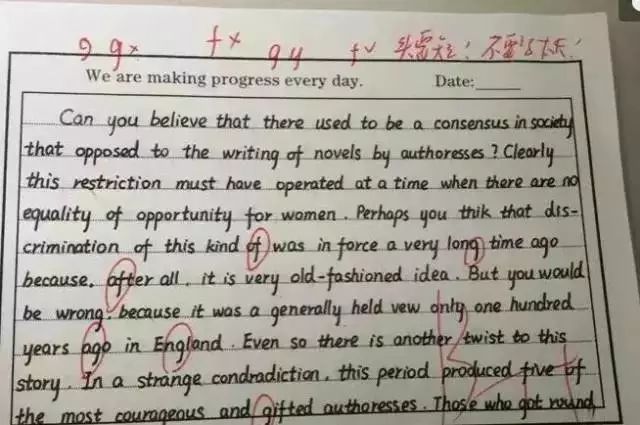 9 g× f× 9 y f√
We are making progress every day. Date:
Can you believe that there used to be a consensus in society
that opposed to the writing of novels by authoresses? Clearly
this restriction must have operated at a time when there are no
equality of opportunity for women. Perhaps you thik that dis-
crimination of this kind of was in force a very long time ago
because, after all, it is very old-fashioned idea. But you would
be wrong, because it was a generally held vew only one hundred
years ago in England. Even so there is another twist to this
story. In a strange condradiction, this period produced five of
the most courageous and gifted authoresses. Those who got round